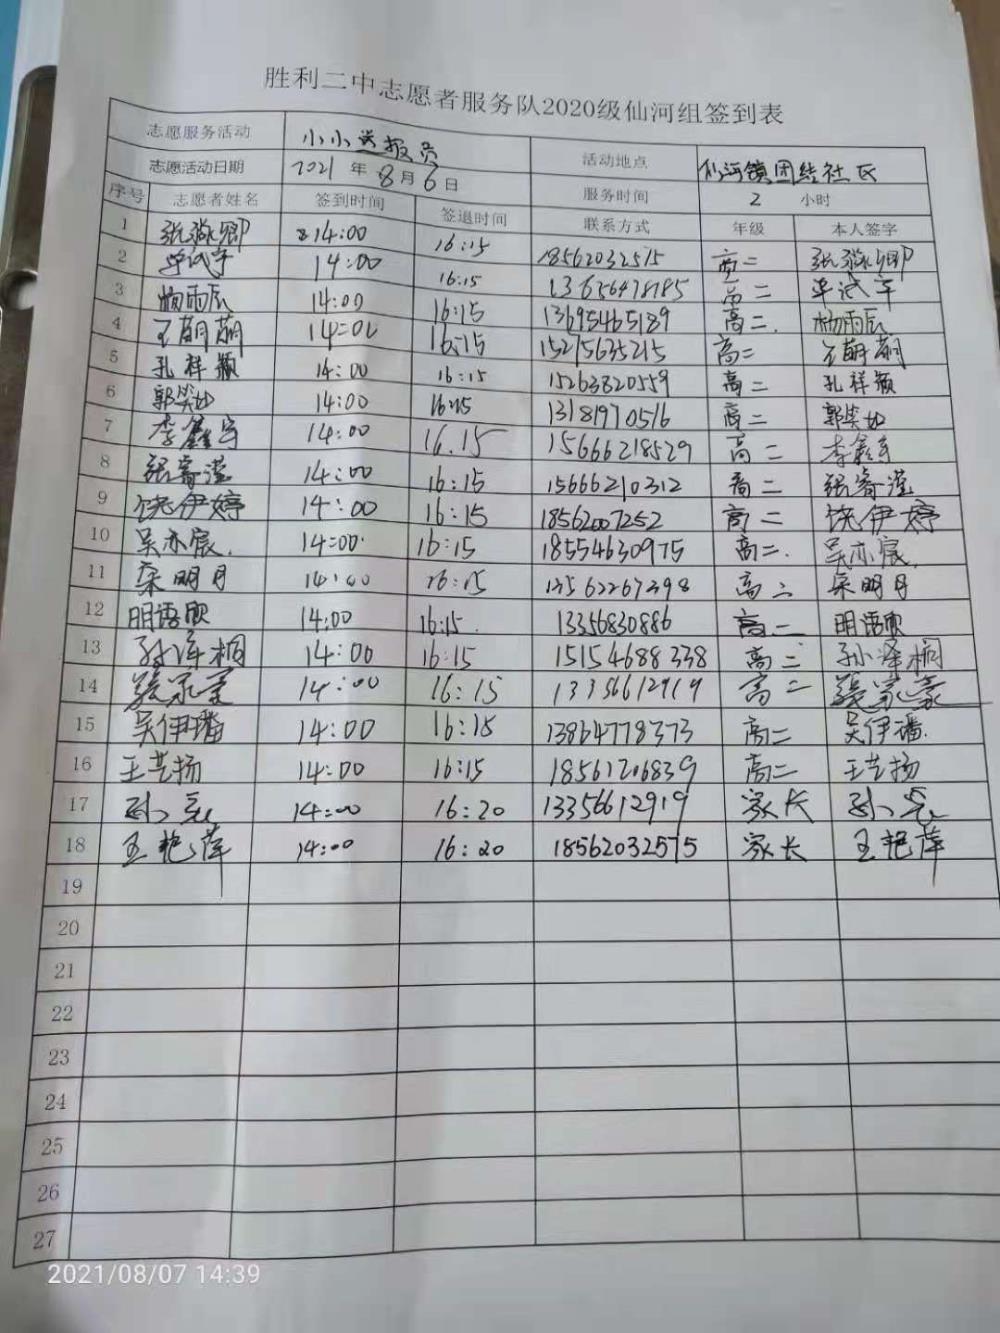 胜利二中志愿者服务队2020级仙河组签到表
志愿服务活动 小小送报员 活动地点 仙河镇团结社区
志愿活动日期 2021 年 8 月 6 日 服务时间 2 小时
序号 志愿者姓名 签到时间 签退时间 联系方式 年级 本人签字
1 14:00 16:15 高二
2 14:00 16:15 高二
3 杨雨辰 14:00 16:15 13695465189 高二. 杨雨辰
4 王萌萌 14:00 16:15 15275635215 高二 王萌萌
5 孔祥颖 14:00 16:15 15263820559 高二 孔祥颖
6 郭笑如 14:00 16:15 13181970516 高二 郭笑如
7 李鑫宇 14:00 16.15 15666218529 高二 李鑫宇
8 张睿滢 14:00 16:15 15666210312 高二 张睿滢
9 饶伊婷 14:00 16:15 18562007252 高二 饶伊婷
10 吴亦宸. 14:00 16:15 18554630975 高二. 吴亦宸.
11 栾明月 14:00 16:15 13562267398 高二 栾明月
12 明语欣 14:00 16:15. 13356830886 高二 明语欣
13 孙泽桐 14:00 16:15 15154688338 高二 孙泽桐
14 张家豪 14:00 16:15 高二 张家豪
15 吴伊璠 14:00 16:15 13864778373 高二 吴伊璠.
16 王艺扬 14:00 16:15 18561206839 高二 王艺扬
17 14:00 16:20 13356612919 家长
18 王艳萍 14:00 16:20 18562032575 家长 王艳萍
19
20
21
22
23
24
25
26
27
2021/08/07 14:39